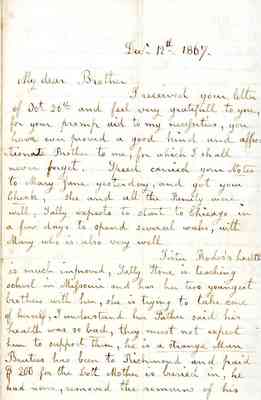 Dec. 12th. 1867.
My dear Brother
I received your letter
of Oct 26th and feel very gratefull to you,
for your promp aid to my necessities, you
have ever proved a good kind and affec
tionate Brother to me, for which I shall
never forget. Speed carried your Notes
to Mary Jane yesterday, and got your
Check, She and all the Family were
well, Sally expects to start to Chicago in
a few days to spend several weeks, with
Mary who is also very well
Sister health
is much improved, Sally Stone is teaching
school in Missouri and has her two youngest
brothers with her, she is trying to take care
of herself, I understand her Father said his
health was so bad, they must not expect
him to support them, he is a strange Man
has been to Richmond and paid
$200 for the Lott Mother is buried in, he
had none, removed the remains of his